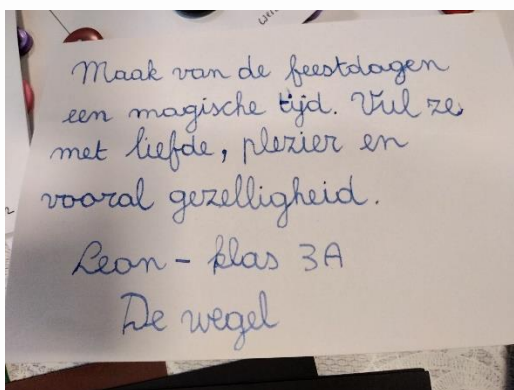 Maak van de feestdagen
een magische tijd. Vul ze
met liefde, plezier en
vooral gezelligheid.
Leon - klas 3A
De wegel